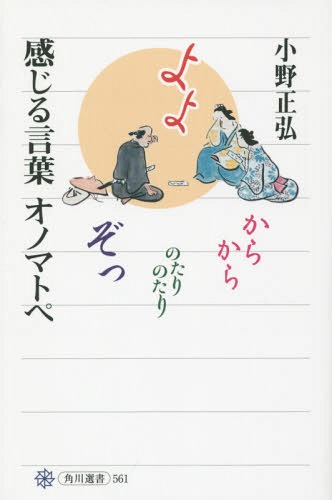 小野正弘
感じる言葉 オノマトペ
よよ
からから
のたりのたり
ぞっ
角川選書 561